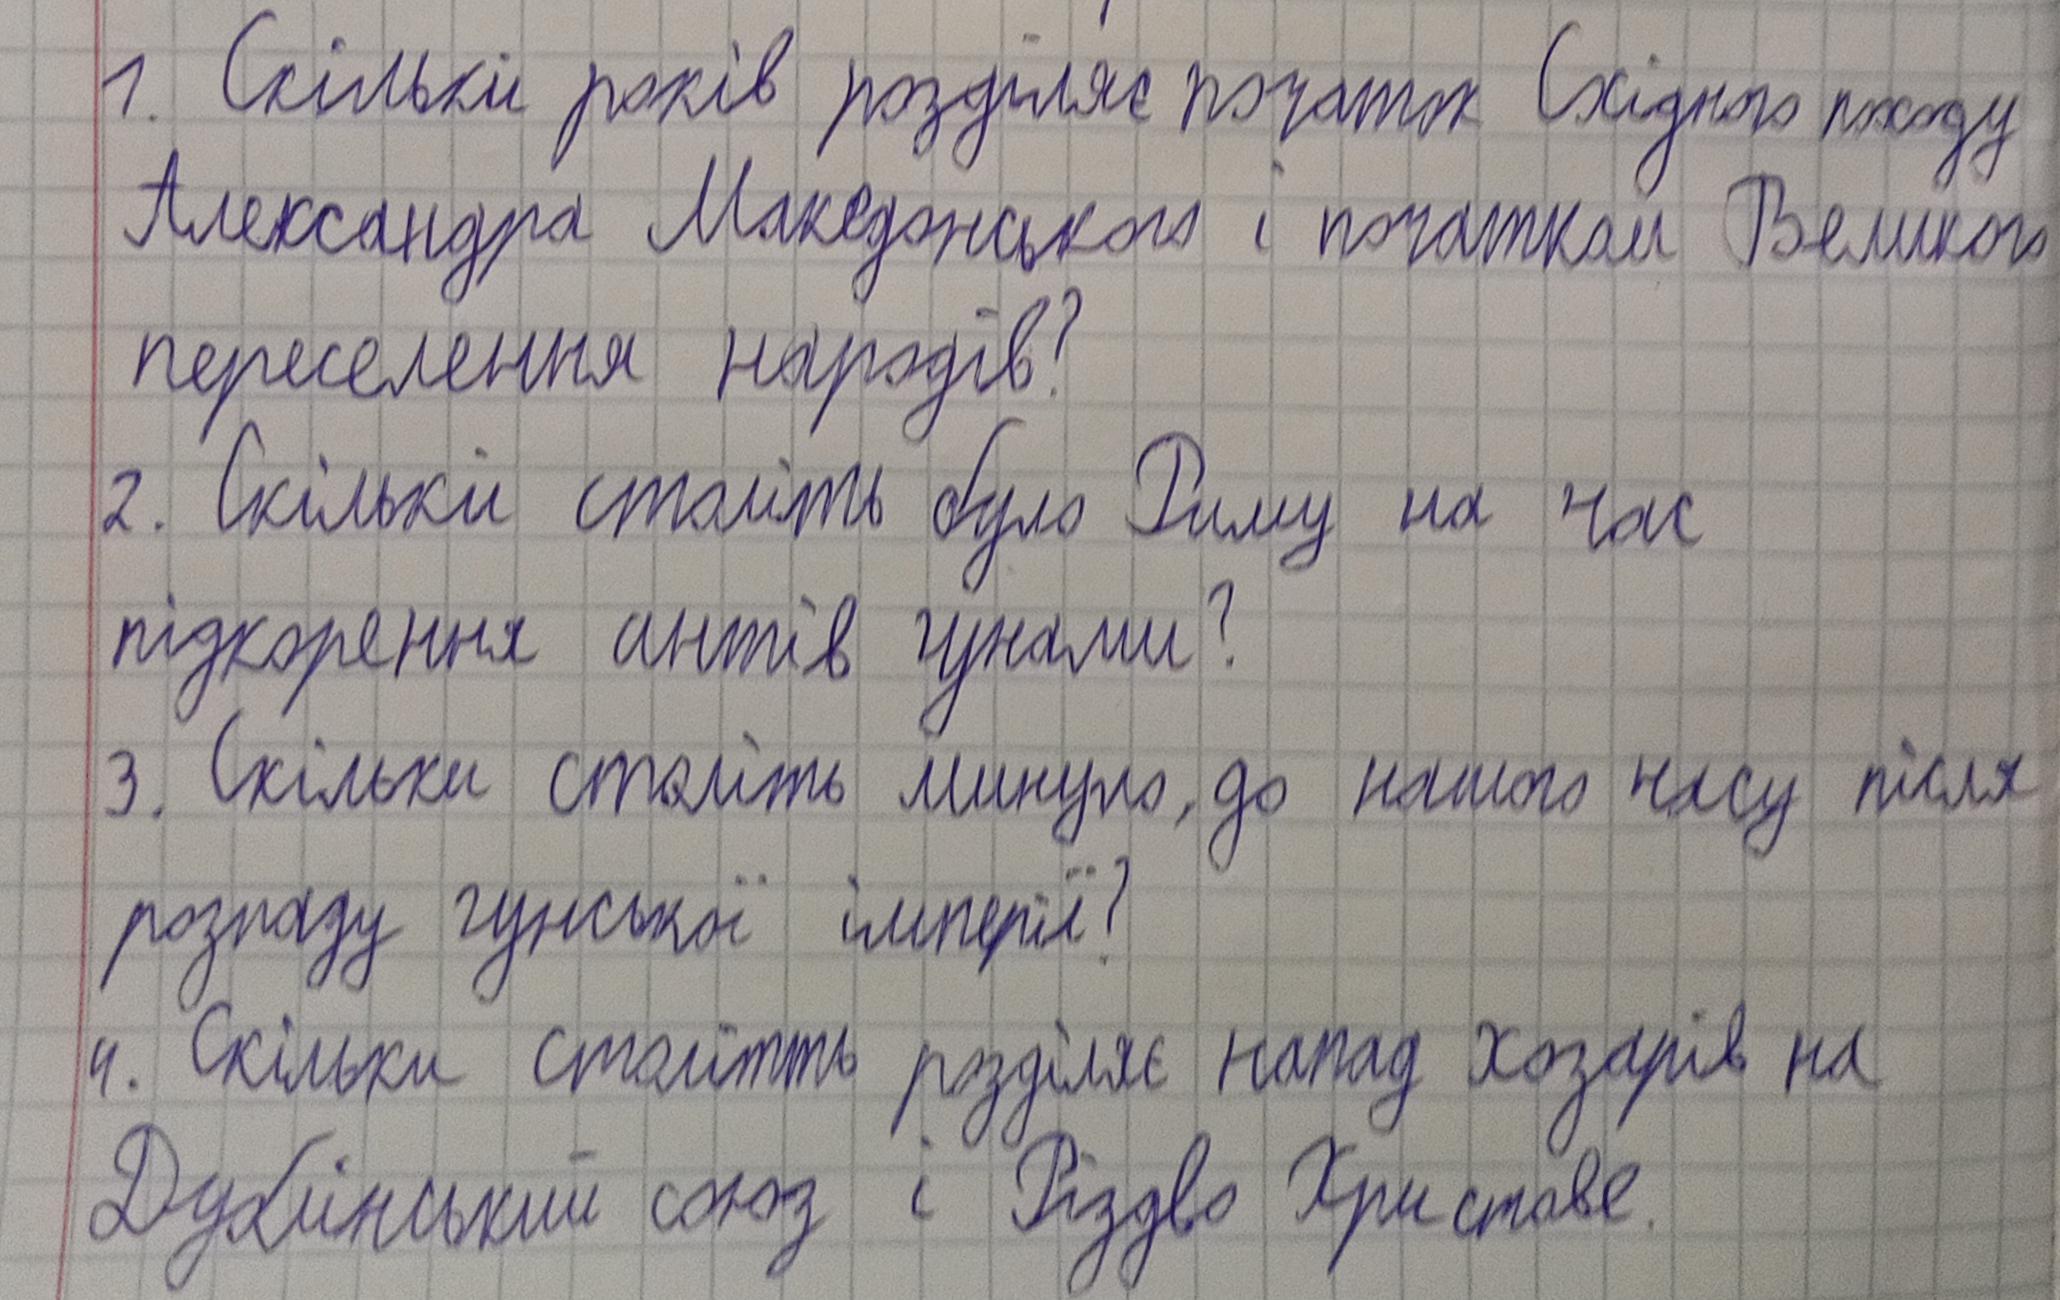 1. Скільки років розділяє початок Східного походу
Александра Македонського і початком Великого
переселення народів?
2. Скількй століть було Риму на час
підкорення антів гунами?
3. Скільки століть минуло, до нашого часу після
розпаду гунської імперії?
4. Скільки століттть розділяє напад хозарів на
Дулібінський союз і Різдво Христове.